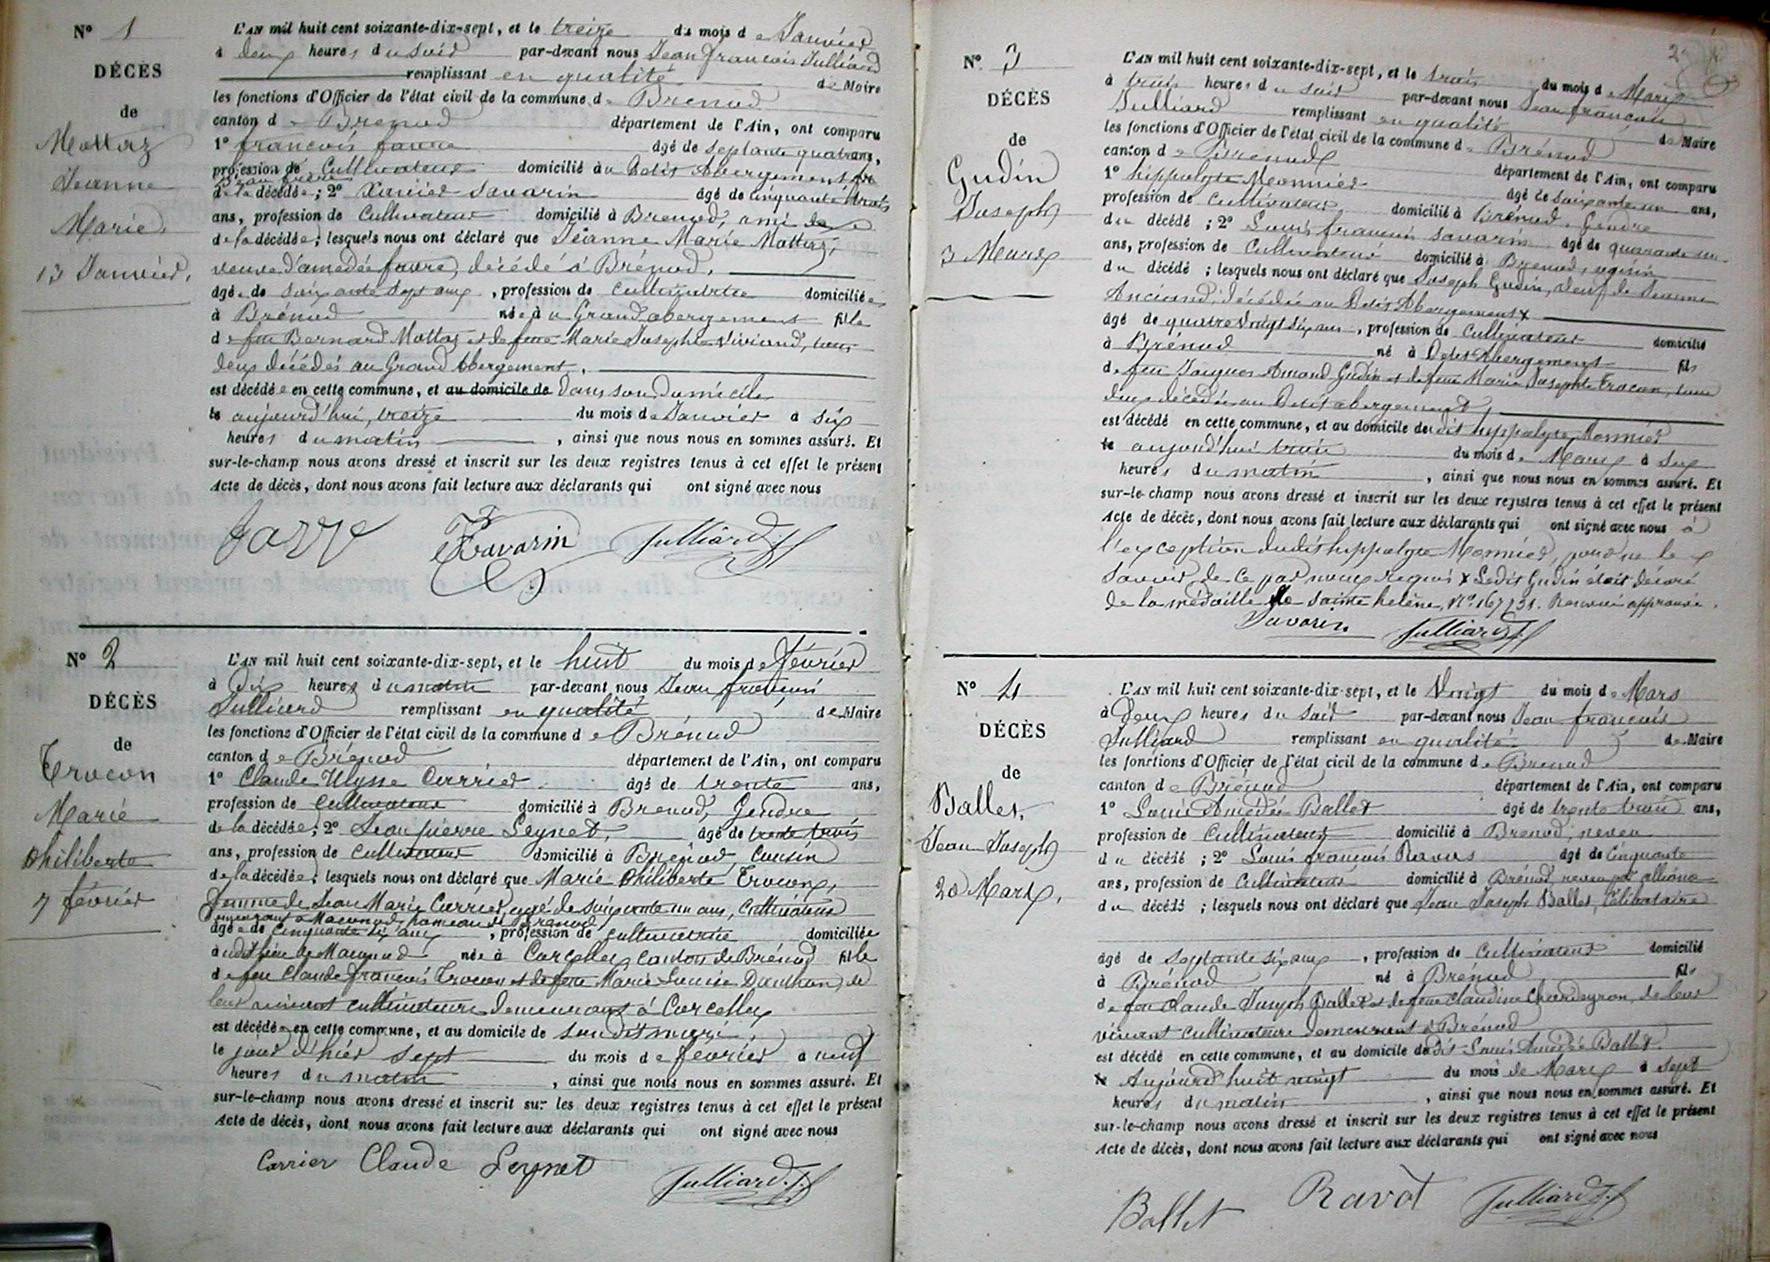 N° 1
DÉCÈS
de
Mottaz
Jeanne
Marie
13 Janvier.
L'AN mil huit cent soixante-dix-sept, et le treize du mois de Janvier
à deux heures du soir par-devant nous Jean françois Julliard
remplissant en qualité de Maire
les fonctions d'Officier de l'état civil de la commune de Brenod
canton de Brenod département de l'Ain, ont comparu
1° françois favre âgé de septante quatre ans,
profession de Cultivateur domicilié au Petit Abergement
Beau frère
de la décédée ; 2° Xavier Savarin âgé de cinquante trois
ans, profession de Cultivateur domicilié à Brenod, ami
de la décédée ; lesquels nous ont déclaré que Jeanne Marie Mottaz,
veuve d'amedée favre, décédé à Brénod,
âgée de soixante sept ans, profession de cultivatrice domiciliée
à Brénod née au Grand abergement fille
de feu Bernard Mottaz et de feue Marie Josephte Viviand, tous
deux décédés au Grand Abergement,
est décédée en cette commune, et au domicile de dans son domicile
le aujourd'hui, treize du mois de Janvier à six
heures du matin, ainsi que nous nous en sommes assuré. Et
sur-le-champ nous avons dressé et inscrit sur les deux registres tenus à cet effet le présent
Acte de décès, dont nous avons fait lecture aux déclarants qui ont signé avec nous
Savarin Julliard J.f
N° 2
DÉCÈS
de
Trocon
Marie
Philiberte
7 février
L'AN mil huit cent soixante-dix-sept, et le huit du mois de février
à dix heures du matin par-devant nous Jean françois
Julliard remplissant en qualité de Maire
les fonctions d'Officier de l'état civil de la commune de Brénod
canton de Brénod département de l'Ain, ont comparu
1° Claude Ulysse Carrier âgé de trente ans,
profession de cultivateur domicilié à Brenod, Gendre
de la décédée ; 2° Jean pierre Seynet, âgé de trente trois
ans, profession de cultivateur domicilié à Brénod, Cousin
de la décédée ; lesquels nous ont déclaré que Marie Philiberte Trocon,
femme de Jean Marie Carrier, agé de soixante un ans, Cultivateur
demeurant à Macconod, hameau de Brenod
âgée de cinquante six ans, profession de cultivatrice domiciliée
audit lieu de Macconod née à Corcelles canton de Brénod fille
de feu Claude françois Trocon et de feue Marie Louise Dauthan, de
leur vivant cultivateurs demeurant à Corcelles
est décédée en cette commune, et au domicile de son dit mari,
le jour d'hier sept du mois de février à neuf
heures du matin, ainsi que nous nous en sommes assuré. Et
sur-le-champ nous avons dressé et inscrit sur les deux registres tenus à cet effet le présent
Acte de décès, dont nous avons fait lecture aux déclarants qui ont signé avec nous
Carrier Claude Seynet Julliard J.f
2
N° 3
DÉCÈS
de
Gudin
Joseph
3 Mars
L'AN mil huit cent soixante-dix-sept, et le trois du mois de Mars
à trois heures du soir par-devant nous Jean françois
Julliard remplissant en qualité de Maire
les fonctions d'Officier de l'état civil de la commune de Brénod
canton de Brenod département de l'Ain, ont comparu
1° hippolyte Monnier âgé de soixante un ans,
profession de cultivateur domicilié à Brénod, Gendre
du décédé ; 2° Louis françois Savarin âgé de quarante un
ans, profession de Cultivateur domicilié à Brenod, voisin
du décédé ; lesquels nous ont déclaré que Joseph Gudin, veuf de Jeanne
Anciand, décédée au Petit Abergement x
âgé de quatre vingt six ans, profession de Cultivateur domicilié
à Brénod né à Petit Abergement fils
de feu Jacques Amand Gudin et de feue Marie Josephte Trocon, tous
deux décédés au Petit abergement,
est décédé en cette commune, et au domicile du dit hippolyte Monnier
le aujourd'hui trois du mois de Mars à six
heures du matin, ainsi que nous nous en sommes assuré. Et
sur-le-champ nous avons dressé et inscrit sur les deux registres tenus à cet effet le présent
Acte de décès, dont nous avons fait lecture aux déclarants qui ont signé avec nous à
l'exception dudit hippolyte Monnier, pour ne le
savoir, de ce par nous requis x Ledit Gudin était décoré
de la médaille de Sainte helène, N° 167731. Renvoi approuvé.
Savarin Julliard J.f
N° 4
DÉCÈS
de
Ballet,
Jean Joseph
20 Mars,
L'AN mil huit cent soixante-dix-sept, et le Vingt du mois de Mars
à Deux heures du soir par-devant nous Jean françois
Julliard remplissant en qualité de Maire
les fonctions d'Officier de l'état civil de la commune de Brenod
canton de Brénod département de l'Ain, ont comparu
1° Louis Amédée Ballet âgé de trente trois ans,
profession de Cultivateur domicilié à Brenod, neveu
du décédé ; 2° Louis françois Ravot âgé de Cinquante
ans, profession de Cultivateur domicilié à Brénod, neveu par alliance
du décédé ; lesquels nous ont déclaré que Jean Joseph Ballet, Célibataire
âgé de septante six ans, profession de Cultivateur domicilié
à Brénod né à Brénod fils
de feu Claude Joseph Ballet et de feue Claudine Chardeyron, de leur
vivant cultivateurs demeurant à Brénod
est décédé en cette commune, et au domicile du dit Louis Amédée Ballet.
le Aujourd'huit vingt du mois de Mars à sept
heures du matin, ainsi que nous nous en sommes assuré. Et
sur-le-champ nous avons dressé et inscrit sur les deux registres tenus à cet effet le présent
Acte de décès, dont nous avons fait lecture aux déclarants qui ont signé avec nous
Ballet Ravot Julliard J.f